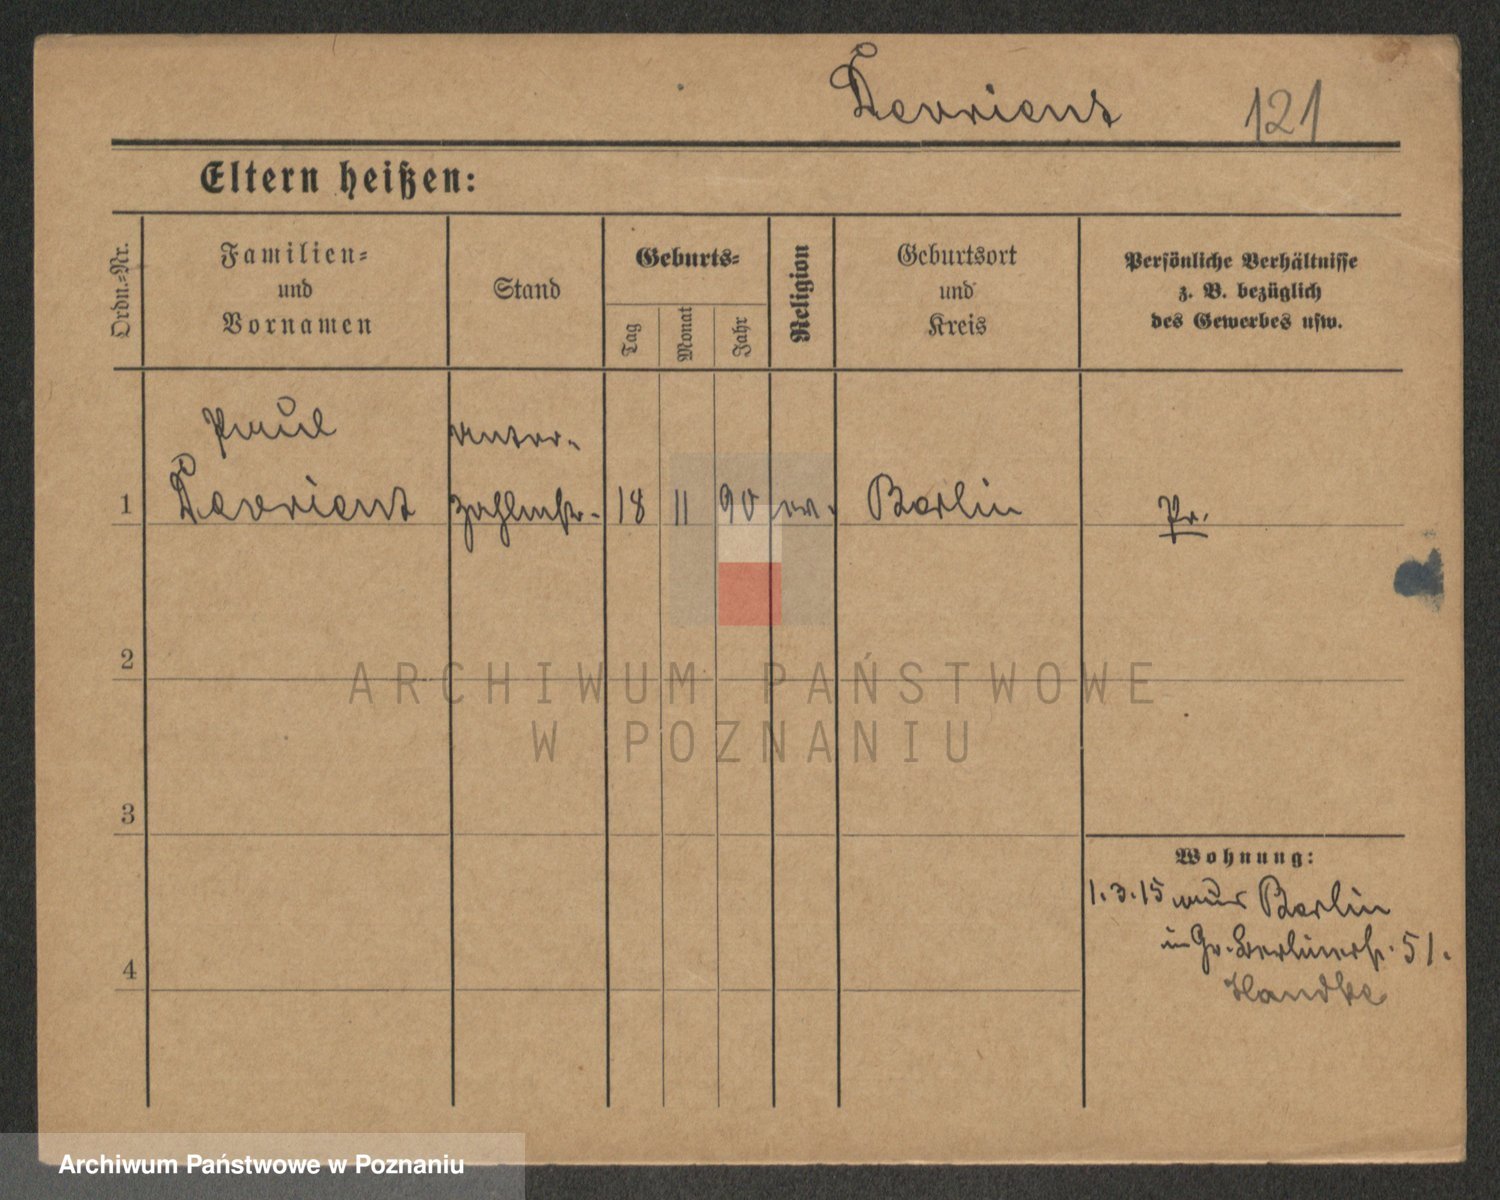 Devrient 121
Eltern heißen:
Ordn.-Nr.
Familien-
und
Vornamen
Stand
Geburts-
Tag
Monat
Jahr
Religion
Geburtsort
und
Kreis
Persönliche Verhältnisse
z. B. bezüglich
des Gewerbes usw.
Paul unter-
1 Devrient Zahlmstr. 18 11 90 ev. Berlin Pr.
2
3
4
Wohnung:
1.3.15 aus Berlin
in Gr. Berlinerstr. 51.
Handke
ARCHIWUM PAŃSTWOWE
W POZNANIU
Archiwum Państwowe w Poznaniu